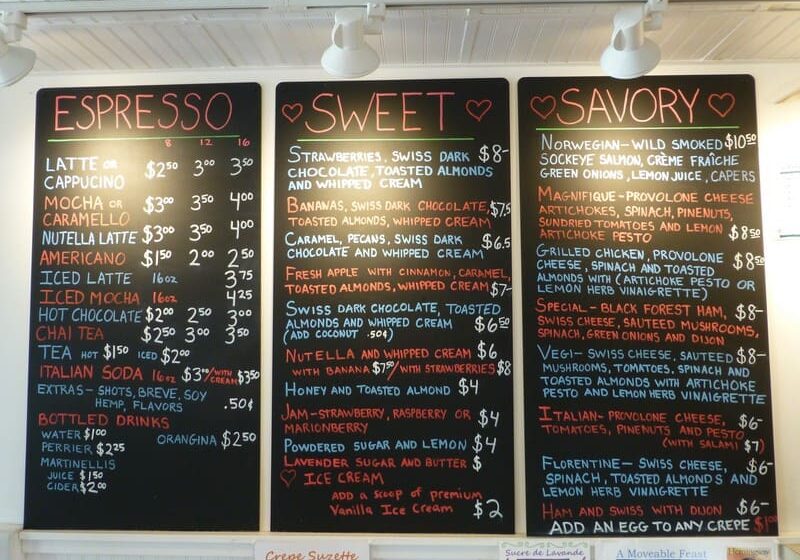 ESPRESSO
8 12 16
LATTE OR $2⁵⁰ 3⁰⁰ 3⁵⁰
CAPPUCINO
MOCHA OR $3⁰⁰ 3⁵⁰ 4⁰⁰
CARAMELLO
NUTELLA LATTE $3⁰⁰ 3⁵⁰ 4⁰⁰
AMERICANO $1⁵⁰ 2⁰⁰ 2⁵⁰
ICED LATTE 16oz 3⁷⁵
ICED MOCHA 16oz 4²⁵
HOT CHOCOLATE $2⁰⁰ 2⁵⁰ 3⁰⁰
CHAI TEA $2⁵⁰ 3⁰⁰ 3⁵⁰
TEA HOT $1⁵⁰ ICED $2⁰⁰
ITALIAN SODA 16oz $3⁰⁰/WITH CREAM $3⁵⁰
EXTRAS- SHOTS, BREVE, SOY
HEMP, FLAVORS .50¢
BOTTLED DRINKS
WATER $1⁰⁰ ORANGINA $2⁵⁰
PERRIER $2²⁵
MARTINELLIS
JUICE $1⁵⁰
CIDER $2⁰⁰
SWEET
STRAWBERRIES, SWISS DARK $8-
CHOCOLATE, TOASTED ALMONDS
AND WHIPPED CREAM
BANANAS, SWISS DARK CHOCOLATE, $7.5
TOASTED ALMONDS, WHIPPED CREAM
CARAMEL, PECANS, SWISS DARK $6.5
CHOCOLATE AND WHIPPED CREAM
FRESH APPLE WITH CINNAMON, CARAMEL,
TOASTED ALMONDS, WHIPPED CREAM $7-
SWISS DARK CHOCOLATE, TOASTED
ALMONDS AND WHIPPED CREAM $6⁵⁰
(ADD COCONUT .50¢)
NUTELLA AND WHIPPED CREAM $6
WITH BANANA $7⁵⁰/WITH STRAWBERRIES $8
HONEY AND TOASTED ALMOND $4
JAM-STRAWBERRY, RASPBERRY OR $4
MARIONBERRY
POWDERED SUGAR AND LEMON $4
LAVENDER SUGAR AND BUTTER $
ICE CREAM
ADD A SCOOP OF PREMIUM
Vanilla Ice Cream $2
SAVORY
NORWEGIAN- WILD SMOKED $10⁵⁰
SOCKEYE SALMON, CRÈME FRAÎCHE
GREEN ONIONS, LEMON JUICE, CAPERS
MAGNIFIQUE-PROVOLONE CHEESE
ARTICHOKES, SPINACH, PINENUTS,
SUNDRIED TOMATOES AND LEMON
ARTICHOKE PESTO $8⁵⁰
GRILLED CHICKEN, PROVOLONE $8⁵⁰
CHEESE, SPINACH AND TOASTED
ALMONDS WITH (ARTICHOKE PESTO OR
LEMON HERB VINAIGRETTE)
SPECIAL- BLACK FOREST HAM, $8-
SWISS CHEESE, SAUTEED MUSHROOMS,
SPINACH, GREEN ONIONS AND DIJON
VEGI- SWISS CHEESE, SAUTEED $8-
MUSHROOMS, TOMATOES, SPINACH AND
TOASTED ALMONDS WITH ARTICHOKE
PESTO AND LEMON HERB VINAIGRETTE
ITALIAN- PROVOLONE CHEESE, $6-
TOMATOES, PINENUTS AND PESTO
(WITH SALAMI $7)
FLORENTINE- SWISS CHEESE, $6-
SPINACH, TOASTED ALMONDS AND
LEMON HERB VINAIGRETTE
HAM AND SWISS WITH DIJON $6-
ADD AN EGG TO ANY CREPE $1⁰⁰
Crepe Suzette
Sucre de Lavande
A Moveable Feast
Hemingway